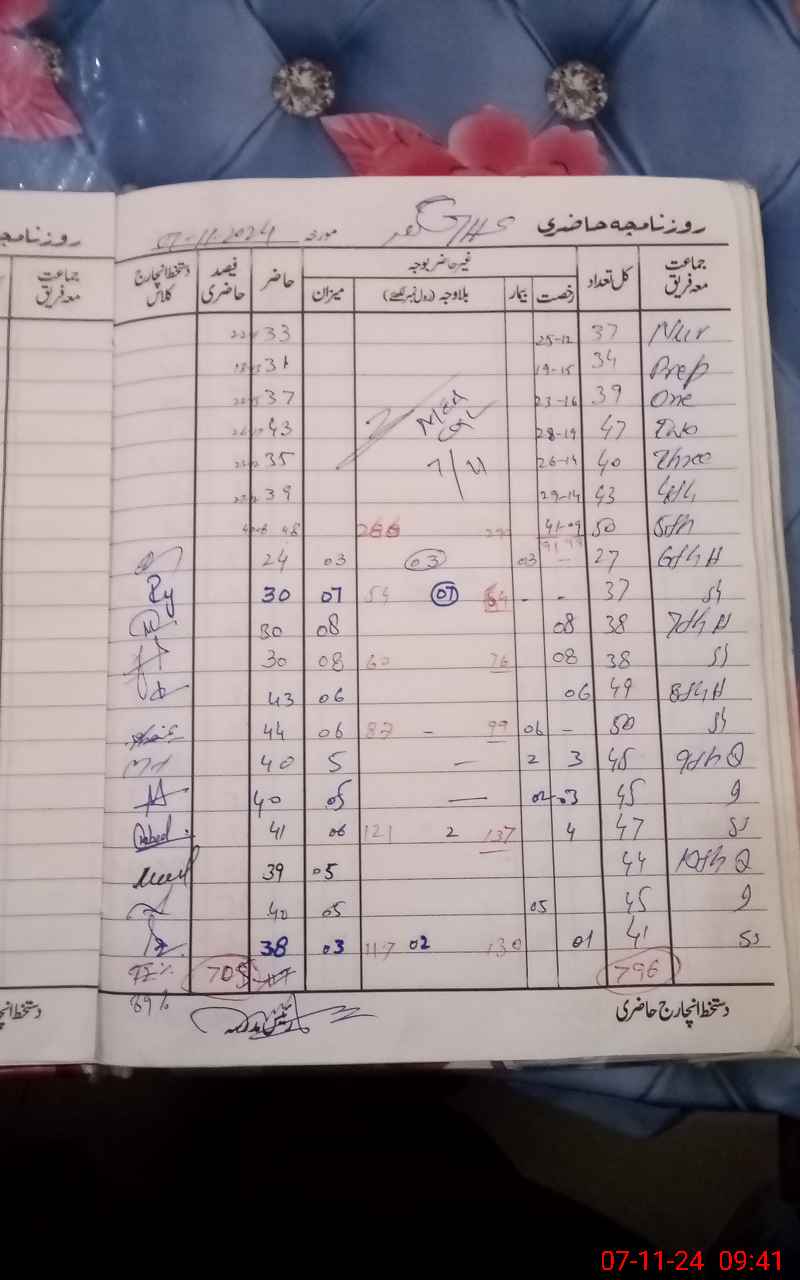 روزنامچہ حاضری GHS مورخہ 07-11-2024
جماعت معہ فریق کل تعداد غیر حاضر بوجہ حاضر فیصد حاضری دستخط انچارج کلاس
رخصت بیمار بلاوجہ (رول نمبر لکھئے) میزان
Nur 37 25-12 33
Prep 34 19-15 31
One 39 23-16 37
Two 47 28-19 43
Three 40 26-14 35
4th 43 29-14 39
7/11
5th 50 41-09 266 48
6th A 27 - 03 03 03 24
37 - - 07 54 07 30
7th A 38 08 08 30
38 08 76 60 08 30
8th A 49 06 06 43
50 - 06 99 - 87 06 44
9th Q 45 3 2 — 5 40
45 03 02 — 05 40
47 4 137 2 121 06 41
10th Q 44 05 39
45 05 05 40
41 01 130 02 117 03 38
796 705
89%
دستخط انچارج حاضری
روزنامچہ
جماعت معہ فریق
07-11-24 09:41